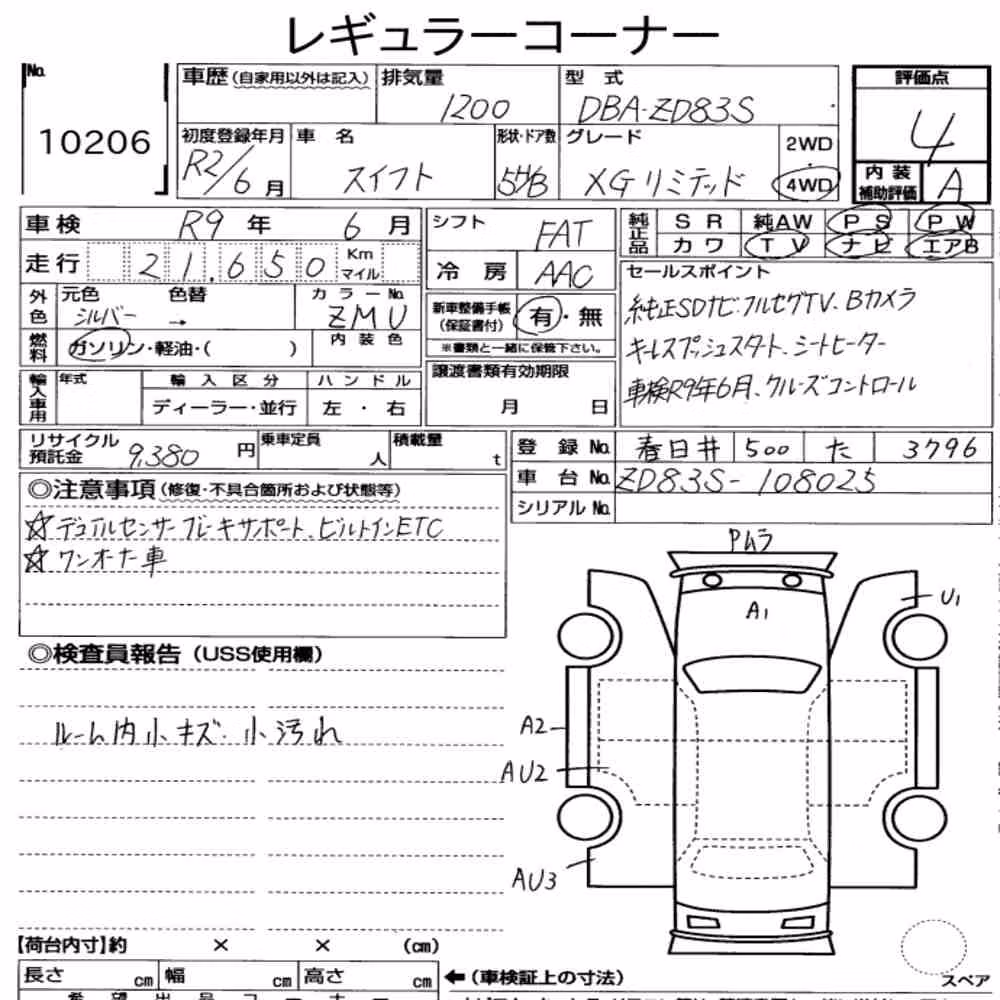 レギュラーコーナー
No. 10206
車歴(自家用以外は記入)
排気量 1200
型式 DBA-ZD83S
評価点 4
初度登録年月 R2/6月
車名 スイフト
形状・ドア数 5H/B
グレード XGリミテッド
2WD
4WD
内装補助評価 A
車検 R9年 6月
シフト FAT
純正品 SR 純AW PS PW
カワ TV ナビ エアB
走行 21,650 Km マイル
冷房 AAC
セールスポイント
純正SDナビ・フルセグTV、Bカメラ
キーレスプッシュスタート、シートヒーター
車検R9年6月、クルーズコントロール
外色 元色 シルバー → 色替 カラーNo. ZMU
新車整備手帳(保証書付) 有・無
※書類と一緒に保管下さい。
燃料 ガソリン・軽油・( )
内装色
譲渡書類有効期限
月 日
輸入車用 年式 輸入区分 ハンドル
ディーラー・並行 左・右
リサイクル預託金 9,380円
乗車定員 人
積載量 t
登録No. 春日井 500 た 3796
車台No. ZD83S-108025
シリアルNo.
◎注意事項(修復・不具合箇所および状態等)
☆デュアルセンサーブレーキサポート、ビルトインETC
☆ワンオーナー車
◎検査員報告(USS使用欄)
ルーム内小キズ・小汚れ
Pムラ
A1
U1
A2
AU2
AU3
【荷台内寸】約 × × (cm)
長さ cm 幅 cm 高さ cm
←(車検証上の寸法)
スペア